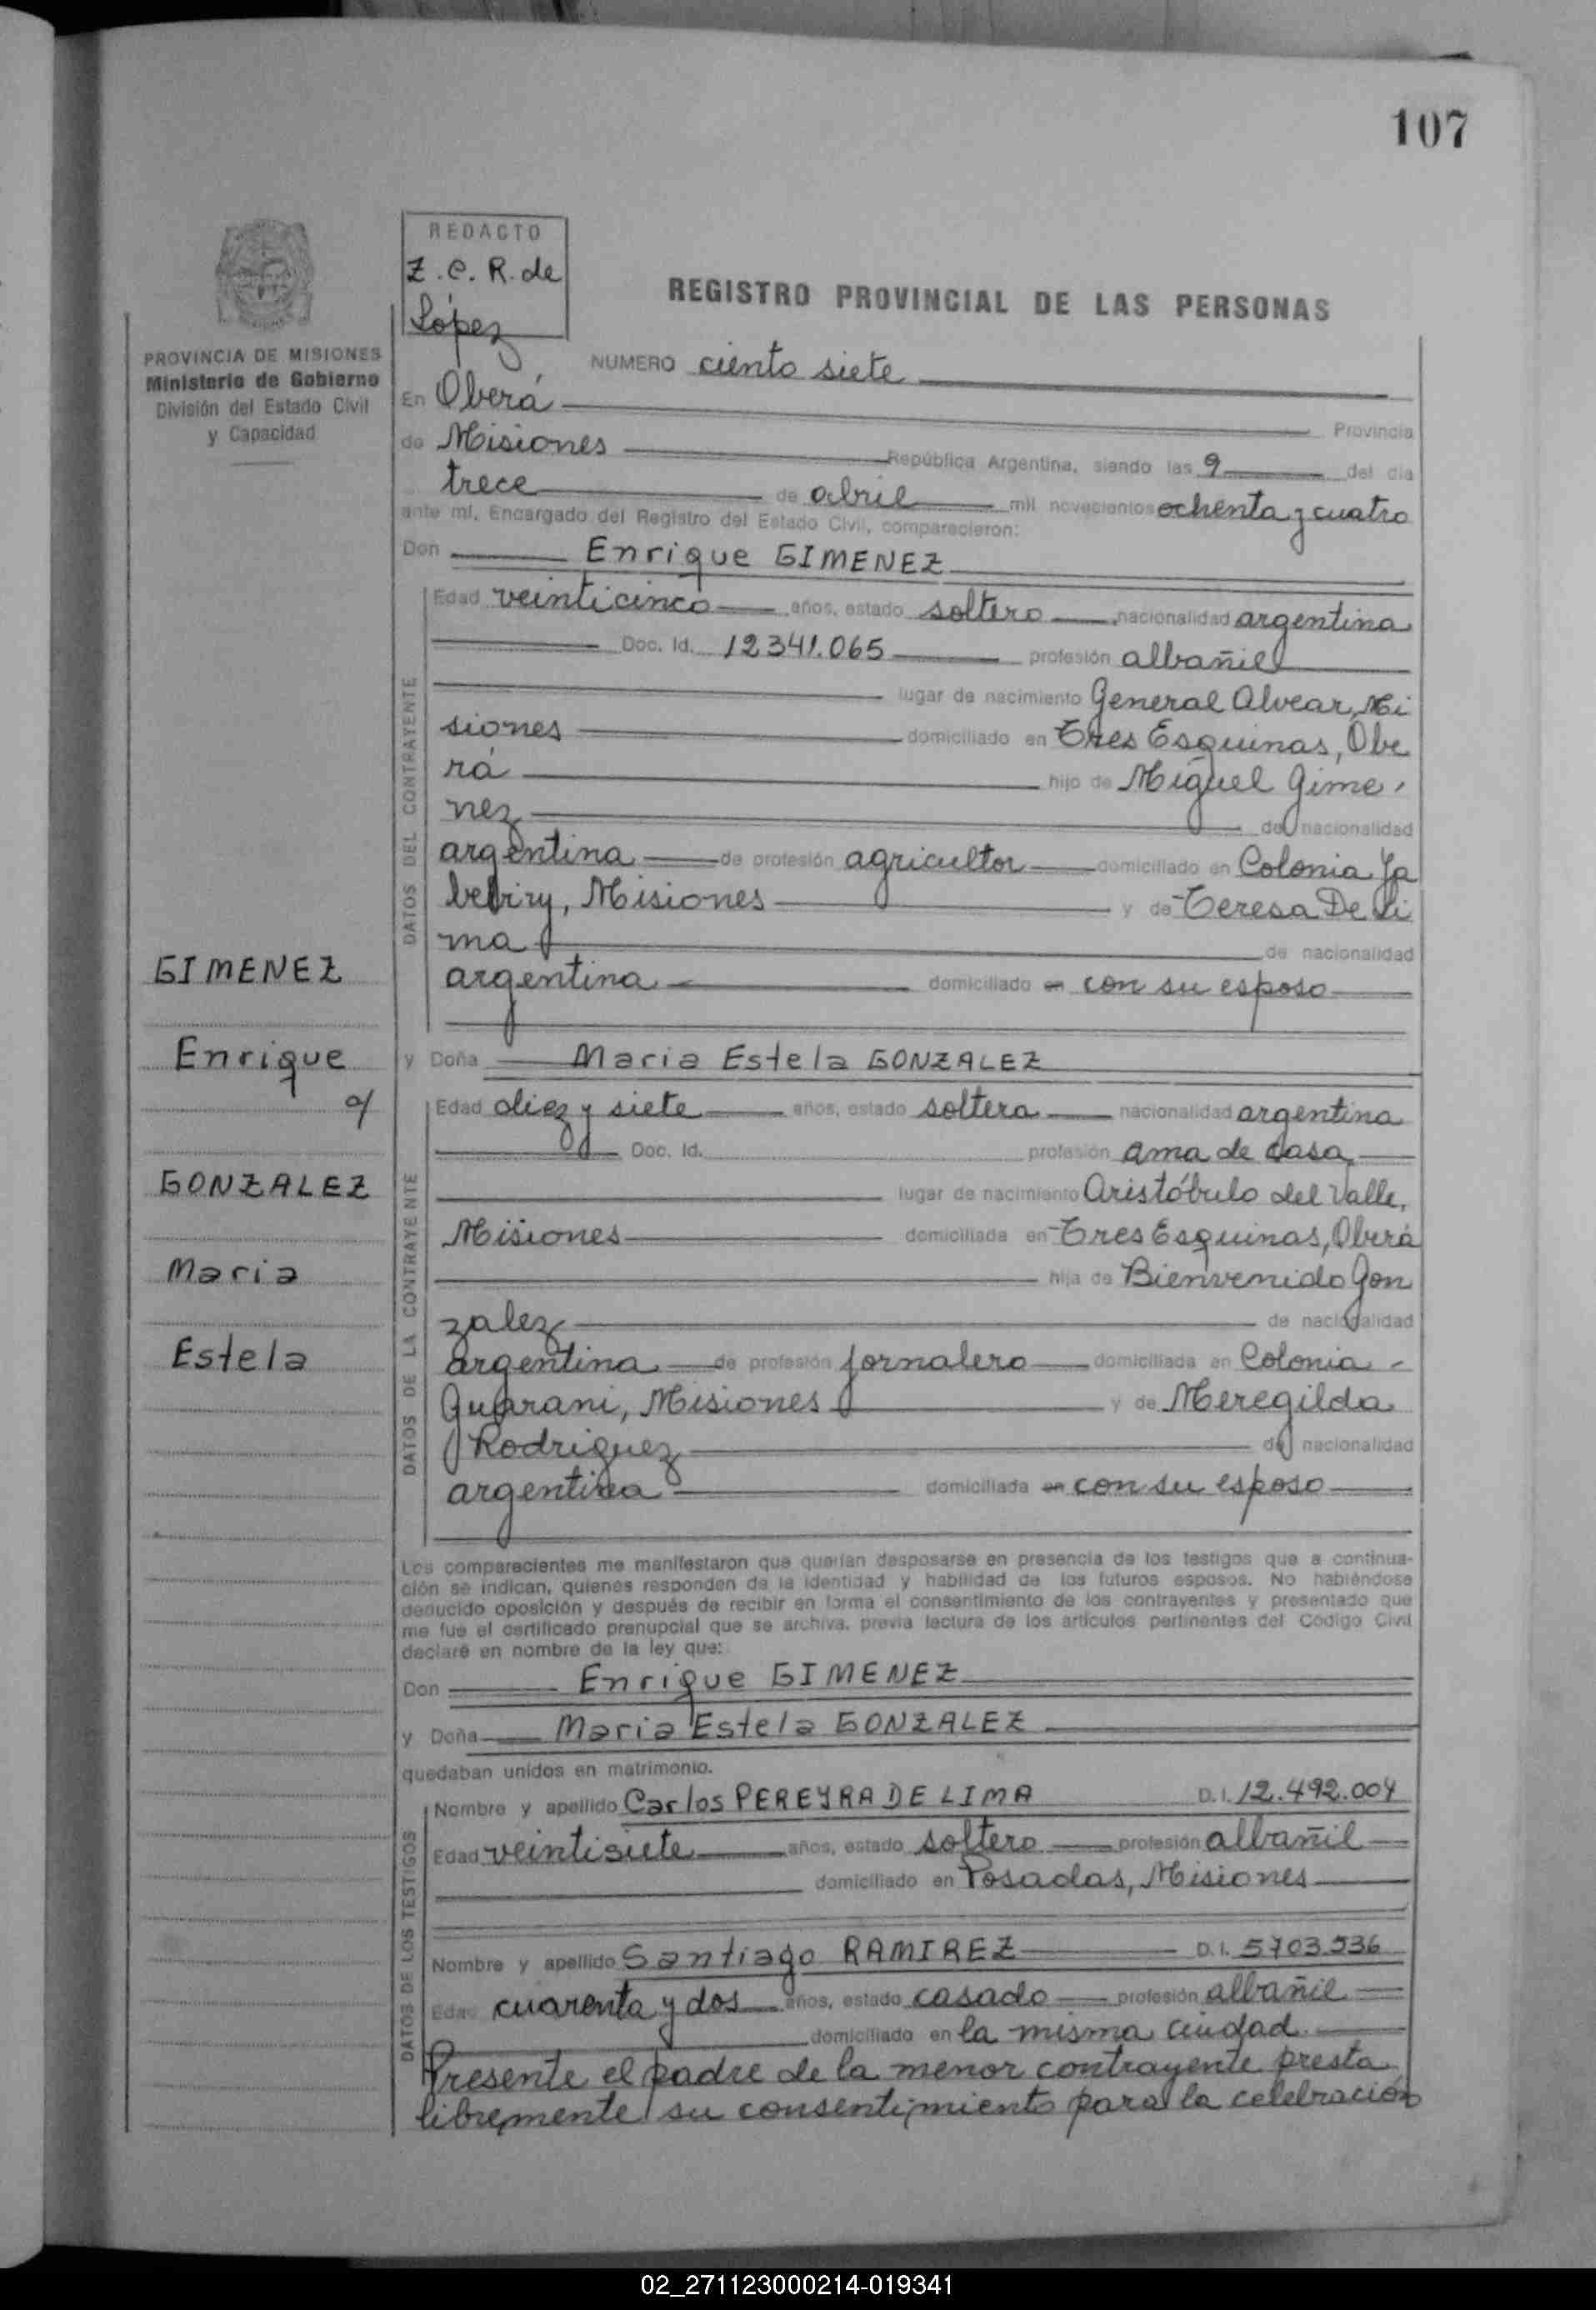 107
REDACTO
Z. C. R. de
López
REGISTRO PROVINCIAL DE LAS PERSONAS
PROVINCIA DE MISIONES
Ministerio de Gobierno
División del Estado Civil
y Capacidad
NUMERO ciento siete
En Oberá Provincia
de Misiones República Argentina, siendo las 9 del día
trece de abril mil novecientos ochenta y cuatro
ante mí, Encargado del Registro del Estado Civil, comparecieron:
Don Enrique GIMENEZ
DATOS DEL CONTRAYENTE
Edad veinticinco años, estado soltero nacionalidad argentina
Doc. Id. 12341.065 profesión albañil
lugar de nacimiento General Alvear, Mi
siones domiciliado en Tres Esquinas, Obe
rá hijo de Miguel Gime
nez de nacionalidad
argentina de profesión agricultor domiciliado en Colonia Ya
bebiry, Misiones y de Teresa De Li
ma de nacionalidad
argentina domiciliado en con su esposo
GIMENEZ
Enrique
c/
GONZALEZ
Maria
Estela
y Doña Maria Estela GONZALEZ
DATOS DE LA CONTRAYENTE
Edad diez y siete años, estado soltera nacionalidad argentina
Doc. Id. profesión ama de casa
lugar de nacimiento Aristóbulo del Valle,
Misiones domiciliada en Tres Esquinas, Oberá
hija de Bienvenido Gon
zalez de nacionalidad
argentina de profesión jornalero domiciliada en Colonia
Guarani, Misiones y de Meregilda
Rodriguez de nacionalidad
argentina domiciliada en con su esposo
Los comparecientes me manifestaron que querían desposarse en presencia de los testigos que a continua-
ción se indican, quienes responden de la identidad y habilidad de los futuros esposos. No habiéndose
deducido oposición y después de recibir en forma el consentimiento de los contrayentes y presentado que
me fue el certificado prenupcial que se archiva, previa lectura de los artículos pertinentes del Código Civil
declaré en nombre de la ley que:
Don Enrique GIMENEZ
y Doña Maria Estela GONZALEZ
quedaban unidos en matrimonio.
DATOS DE LOS TESTIGOS
Nombre y apellido Carlos PEREYRA DE LIMA D.I. 12.492.004
Edad veintisiete años, estado soltero profesión albañil
domiciliado en Posadas, Misiones
Nombre y apellido Santiago RAMIREZ D.I. 5703936
Edad cuarenta y dos años, estado casado profesión albañil
domiciliado en la misma ciudad
Presente el padre de la menor contrayente presta
libremente su consentimiento para la celebración
02_271123000214-019341